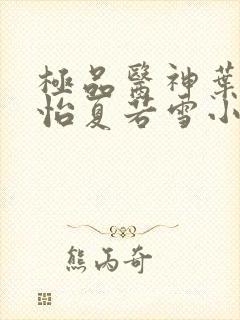 極品醫神葉
怡夏若雪小
熊丙奇